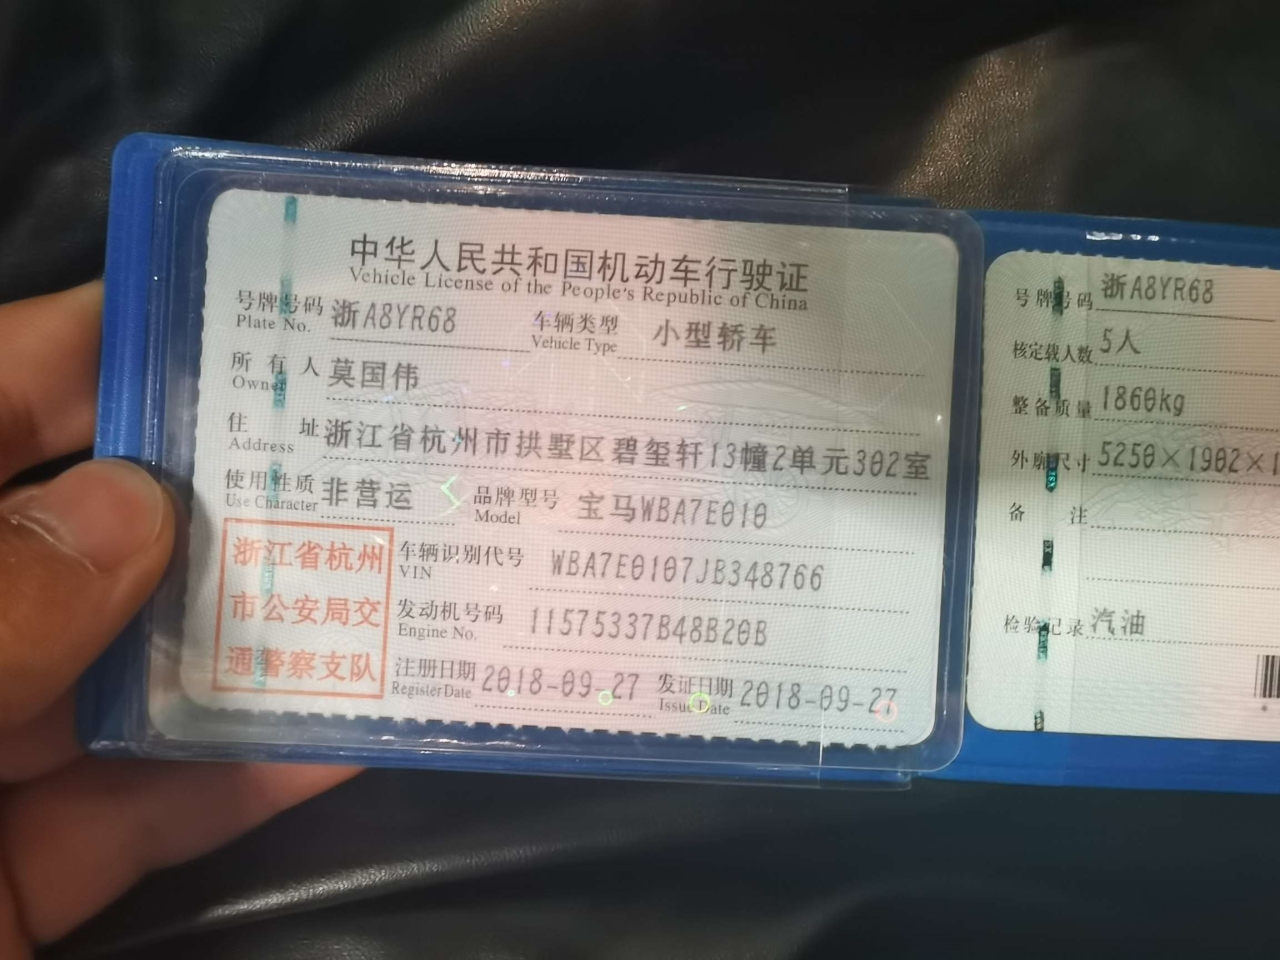 中华人民共和国机动车行驶证
Vehicle License of the People's Republic of China
号牌号码 浙A8YR68 车辆类型 小型轿车
Plate No. Vehicle Type
所有人 莫国伟
Owner
住址 浙江省杭州市拱墅区碧玺轩13幢2单元302室
Address
使用性质 非营运 品牌型号 宝马WBA7E010
Use Character Model
浙江省杭州
市公安局交
通警察支队
车辆识别代号 WBA7E0107JB348766
VIN
发动机号码 11575337B48B20B
Engine No.
注册日期 2018-09-27 发证日期 2018-09-27
Register Date Issue Date
号牌号码 浙A8YR68
核定载人数 5人
整备质量 1860kg
外廓尺寸 5250×1902×1
备注
检验记录 汽油